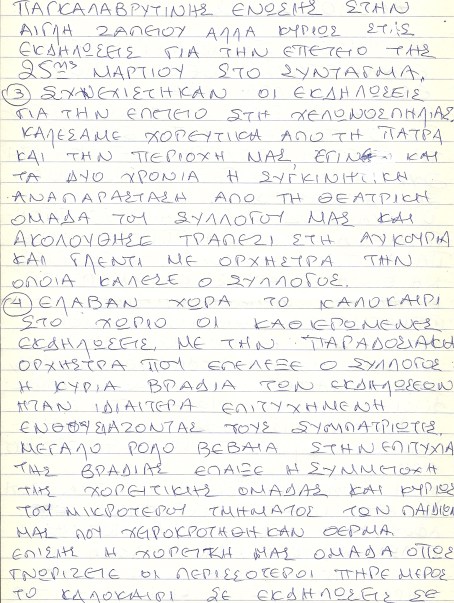 ΠΑΓΚΑΛΑΒΡΥΤΙΝΗΣ ΕΝΩΣΗΣ ΣΤΗΝ
ΑΙΓΛΗ ΖΑΠΕΙΟΥ ΑΛΛΑ ΚΥΡΙΩΣ ΣΤΙΣ
ΕΚΔΗΛΩΣΕΙΣ ΓΙΑ ΤΗΝ ΕΠΕΤΕΙΟ ΤΗΣ
25ΗΣ ΜΑΡΤΙΟΥ ΣΤΟ ΣΥΝΤΑΓΜΑ.
3 ΣΥΝΕΧΙΣΤΗΚΑΝ ΟΙ ΕΚΔΗΛΩΣΕΙΣ
ΓΙΑ ΤΗΝ ΕΠΕΤΕΙΟ ΣΤΗ ΧΕΛΩΝΟΣΠΗΛΙΑ.
ΚΑΛΕΣΑΜΕ ΧΟΡΕΥΤΙΚΑ ΑΠΟ ΤΗ ΠΑΤΡΑ
ΚΑΙ ΤΗΝ ΠΕΡΙΟΧΗ ΜΑΣ, ΕΓΙΝΕ ΚΑΙ
ΤΑ ΔΥΟ ΧΡΟΝΙΑ Η ΣΥΓΚΙΝΗΤΙΚΗ
ΑΝΑΠΑΡΑΣΤΑΣΗ ΑΠΟ ΤΗ ΘΕΑΤΡΙΚΗ
ΟΜΑΔΑ ΤΟΥ ΣΥΛΛΟΓΟΥ ΜΑΣ ΚΑΙ
ΑΚΟΛΟΥΘΗΣΕ ΤΡΑΠΕΖΙ ΣΤΗ ΛΥΚΟΥΡΙΑ
ΚΑΙ ΓΛΕΝΤΙ ΜΕ ΟΡΧΗΣΤΡΑ ΤΗΝ
ΟΠΟΙΑ ΚΑΛΕΣΕ Ο ΣΥΛΛΟΓΟΣ.
4 ΕΛΑΒΑΝ ΧΩΡΑ ΤΟ ΚΑΛΟΚΑΙΡΙ
ΣΤΟ ΧΩΡΙΟ ΟΙ ΚΑΘΙΕΡΩΜΕΝΕΣ
ΕΚΔΗΛΩΣΕΙΣ, ΜΕ ΤΗΝ ΠΑΡΑΔΟΣΙΑΚΗ
ΟΡΧΗΣΤΡΑ ΠΟΥ ΕΠΕΛΕΞΕ Ο ΣΥΛΛΟΓΟΣ
Η ΚΥΡΙΑ ΒΡΑΔΙΑ ΤΩΝ ΕΚΔΗΛΩΣΕΩΝ
ΗΤΑΝ ΙΔΙΑΙΤΕΡΑ ΕΠΙΤΥΧΗΜΕΝΗ
ΕΝΘΟΥΣΙΑΖΟΝΤΑΣ ΤΟΥΣ ΣΥΜΠΑΤΡΙΩΤΕΣ.
ΜΕΓΑΛΟ ΡΟΛΟ ΒΕΒΑΙΑ ΣΤΗΝ ΕΠΙΤΥΧΙΑ
ΤΗΣ ΒΡΑΔΙΑΣ ΕΠΑΙΞΕ Η ΣΥΜΜΕΤΟΧΗ
ΤΗΣ ΧΟΡΕΥΤΙΚΗΣ ΟΜΑΔΑΣ ΚΑΙ ΚΥΡΙΩΣ
ΤΟΥ ΜΙΚΡΟΤΕΡΟΥ ΤΜΗΜΑΤΟΣ ΤΩΝ ΠΑΙΔΙΩΝ
ΜΑΣ ΠΟΥ ΧΕΙΡΟΚΡΟΤΗΘΗΚΑΝ ΘΕΡΜΑ
ΕΠΙΣΗΣ Η ΧΟΡΕΥΤΙΚΗ ΜΑΣ ΟΜΑΔΑ ΟΠΩΣ
ΓΝΩΡΙΖΕΤΕ ΟΙ ΠΕΡΙΣΣΟΤΕΡΟΙ ΠΗΡΕ ΜΕΡΟΣ
ΤΟ ΚΑΛΟΚΑΙΡΙ ΣΕ ΕΚΔΗΛΩΣΕΙΣ ΣΕ